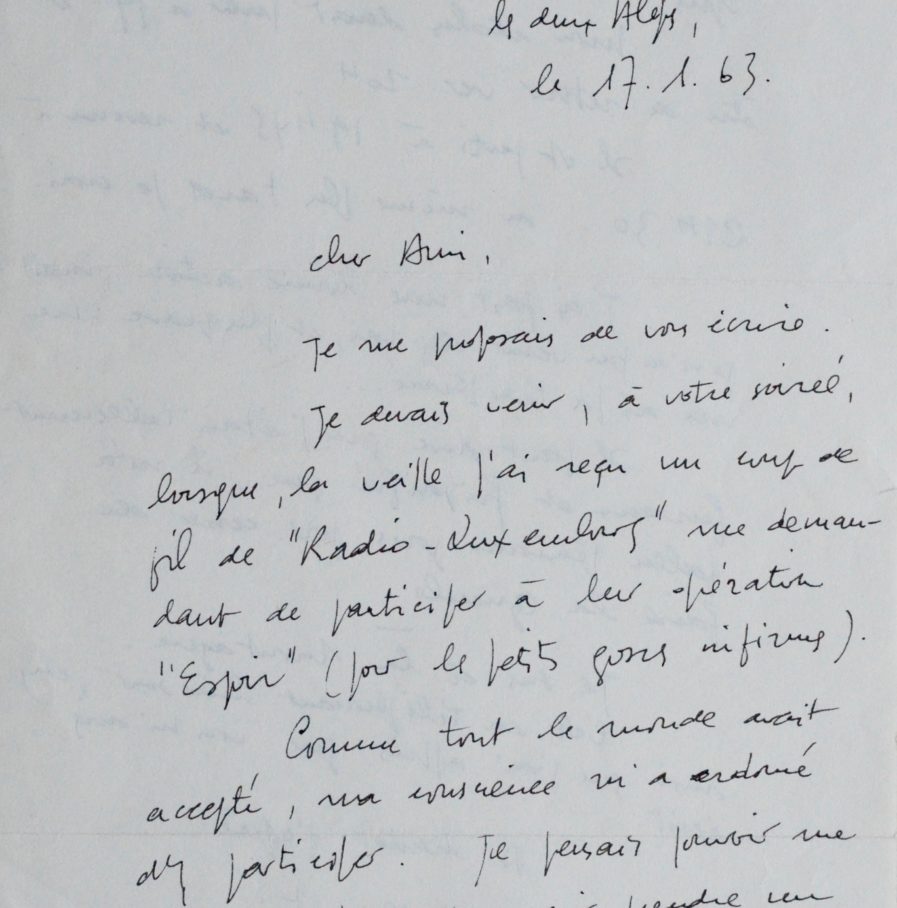 les deux Alpes,
le 17.1.63.
cher Ami,
Je me proposais de vous écrire.
Je devais venir, à votre soirée,
lorsque, la veille j'ai reçu un coup de
fil de "Radio-Luxembourg" me deman-
dant de participer à leur opération
"Espoir" (pour les petits gosses infirmes).
Comme tout le monde avait
accepté, ma conscience m'a ordonné
d'y participer. Je pensais pouvoir me
prendre un